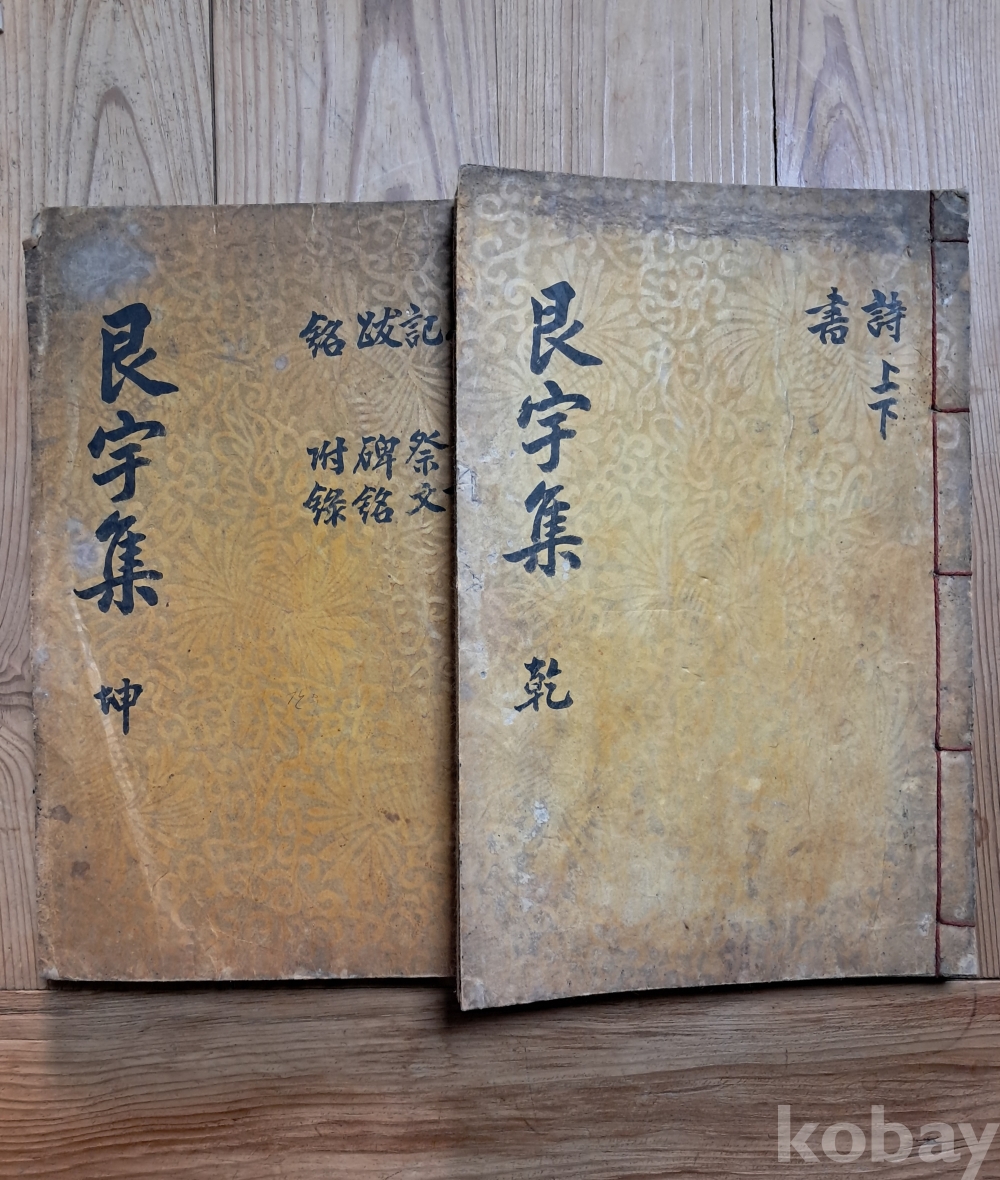 詩 上下
書
艮宇集 乾
記 祭文
跋 碑銘
銘 附錄
艮宇集 坤
kobay